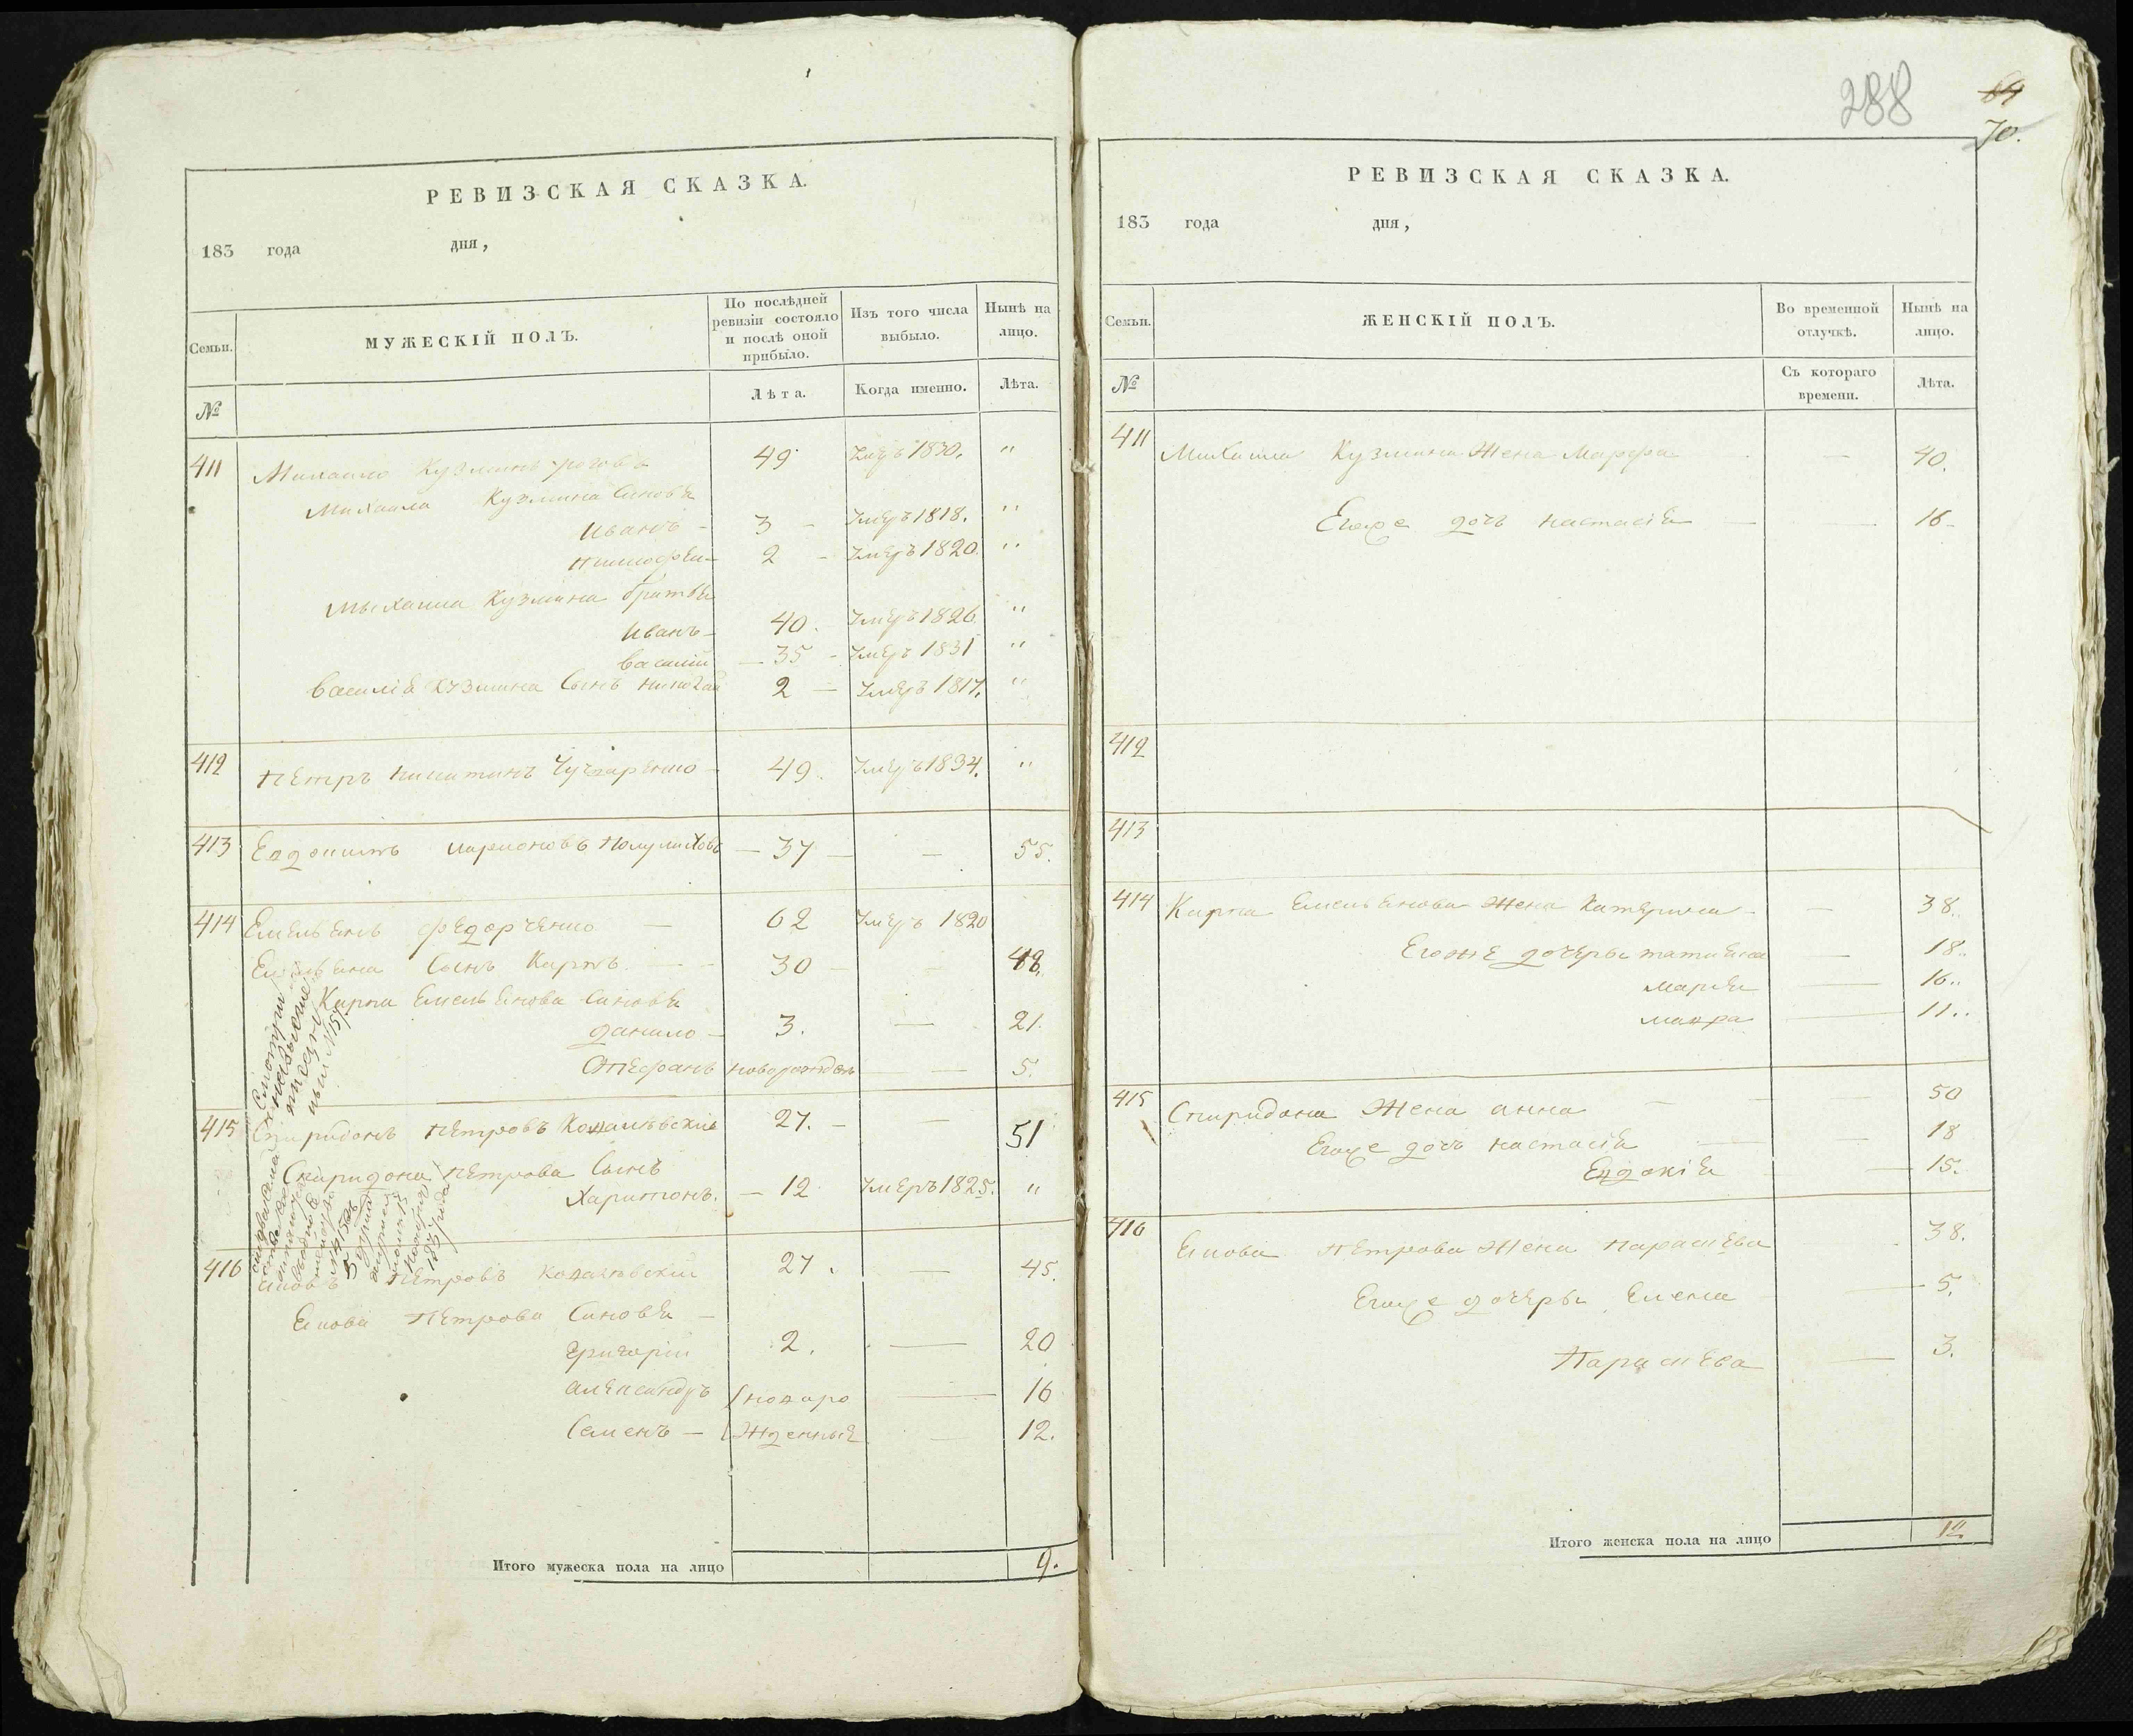 288
69
70.
РЕВИЗСКАЯ СКАЗКА.
183 года дня,
Семьи. МУЖЕСКІЙ ПОЛЪ. По послѣдней ревизіи состояло и послѣ оной прибыло. Изъ того числа выбыло. Нынѣ на лицо.
№ Лѣта. Когда именно. Лѣта.
411 Михаило Кузминъ 49 Умеръ 1830. "
Михаила Кузмина Синовя
Иванъ 3 Умеръ 1818. "
2 Умеръ 1820. "
Михаила Кузмина братья
Иванъ 40. Умеръ 1826. "
Василій 35 Умеръ 1831 "
Василія Кузмина Сынъ Николай 2 Умеръ 1817. "
412 Петръ Никитинъ 49. Умеръ 1834. "
413 Евдокимъ 37 — 55.
414 Емельянъ Федорченко 62 Умеръ 1820
Емельяна Сынъ Карпъ 30 — 48.
Карпа Емельянова Синовя
Данило 3. — 21.
Стефанъ новорожденъ — 5.
415 Спиридонъ Петровъ 27. — 51
Спиридона Петрова Сынъ
Харитонъ. 12 Умеръ 1825. "
416 Яковъ Петровъ 27. — 45.
Якова Петрова Синовя
Григорій 2. — 20
Александръ новоро — 16
Семенъ жденныя — 12.
Итого мужеска пола на лицо 9.
РЕВИЗСКАЯ СКАЗКА.
183 года дня,
Семьи. ЖЕНСКІЙ ПОЛЪ. Во временной отлучкѣ. Нынѣ на лицо.
№ Съ котораго времени. Лѣта.
411 Михаила Кузмина Жена Марфа — 40.
Егоже дочь Настасія — 16
412
413
414 Карпа Емельянова Жена Катерина — 38.
Егоже дочеры Татияна — 18.
Марія — 16.
Мавра — 11.
415 Спиридона Жена Анна — 50
Егоже дочь Настасія — 18
Евдокія — 15.
416 Якова Петрова Жена Параскева 38.
Егоже дочеры Елена — 5.
Параскева — 3.
Итого женска пола на лицо 12